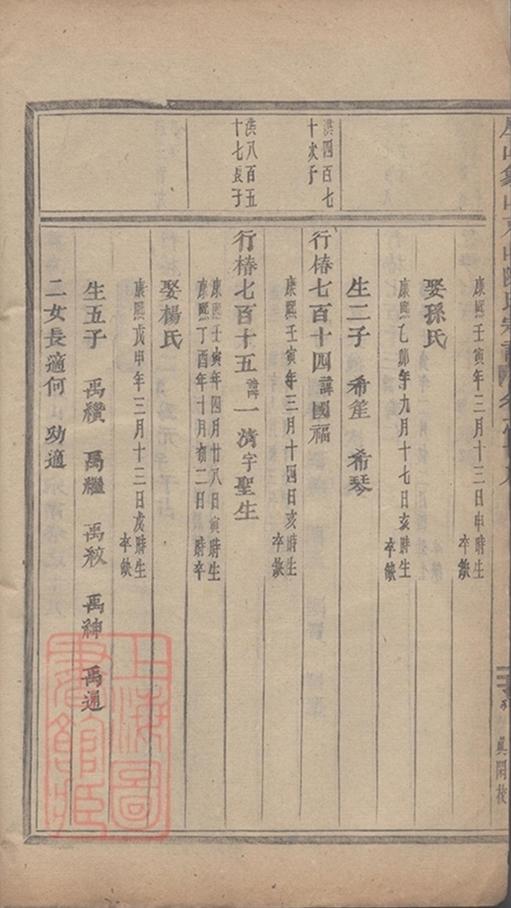 康熙壬寅年三月十三日申時生
卒缺
娶孫氏
康熙乙卯年九月十七日亥時生
卒缺
生二子 希筀 希琴
洪四百七
十次子
行椿七百十四諱國福
康熙壬寅年三月十四日亥時生
卒缺
洪八百五
十七長子
行椿七百十五諱一濤字聖生
康熙壬寅年四月廿八日寅時生
康熙丁酉年十月初二日 時卒
娶楊氏
康熙戊申年三月十三日戌時生
卒缺
生五子 禹纘 禹繼 禹敉 禹紳 禹通
二女長適何 幼適
上海圖書館藏